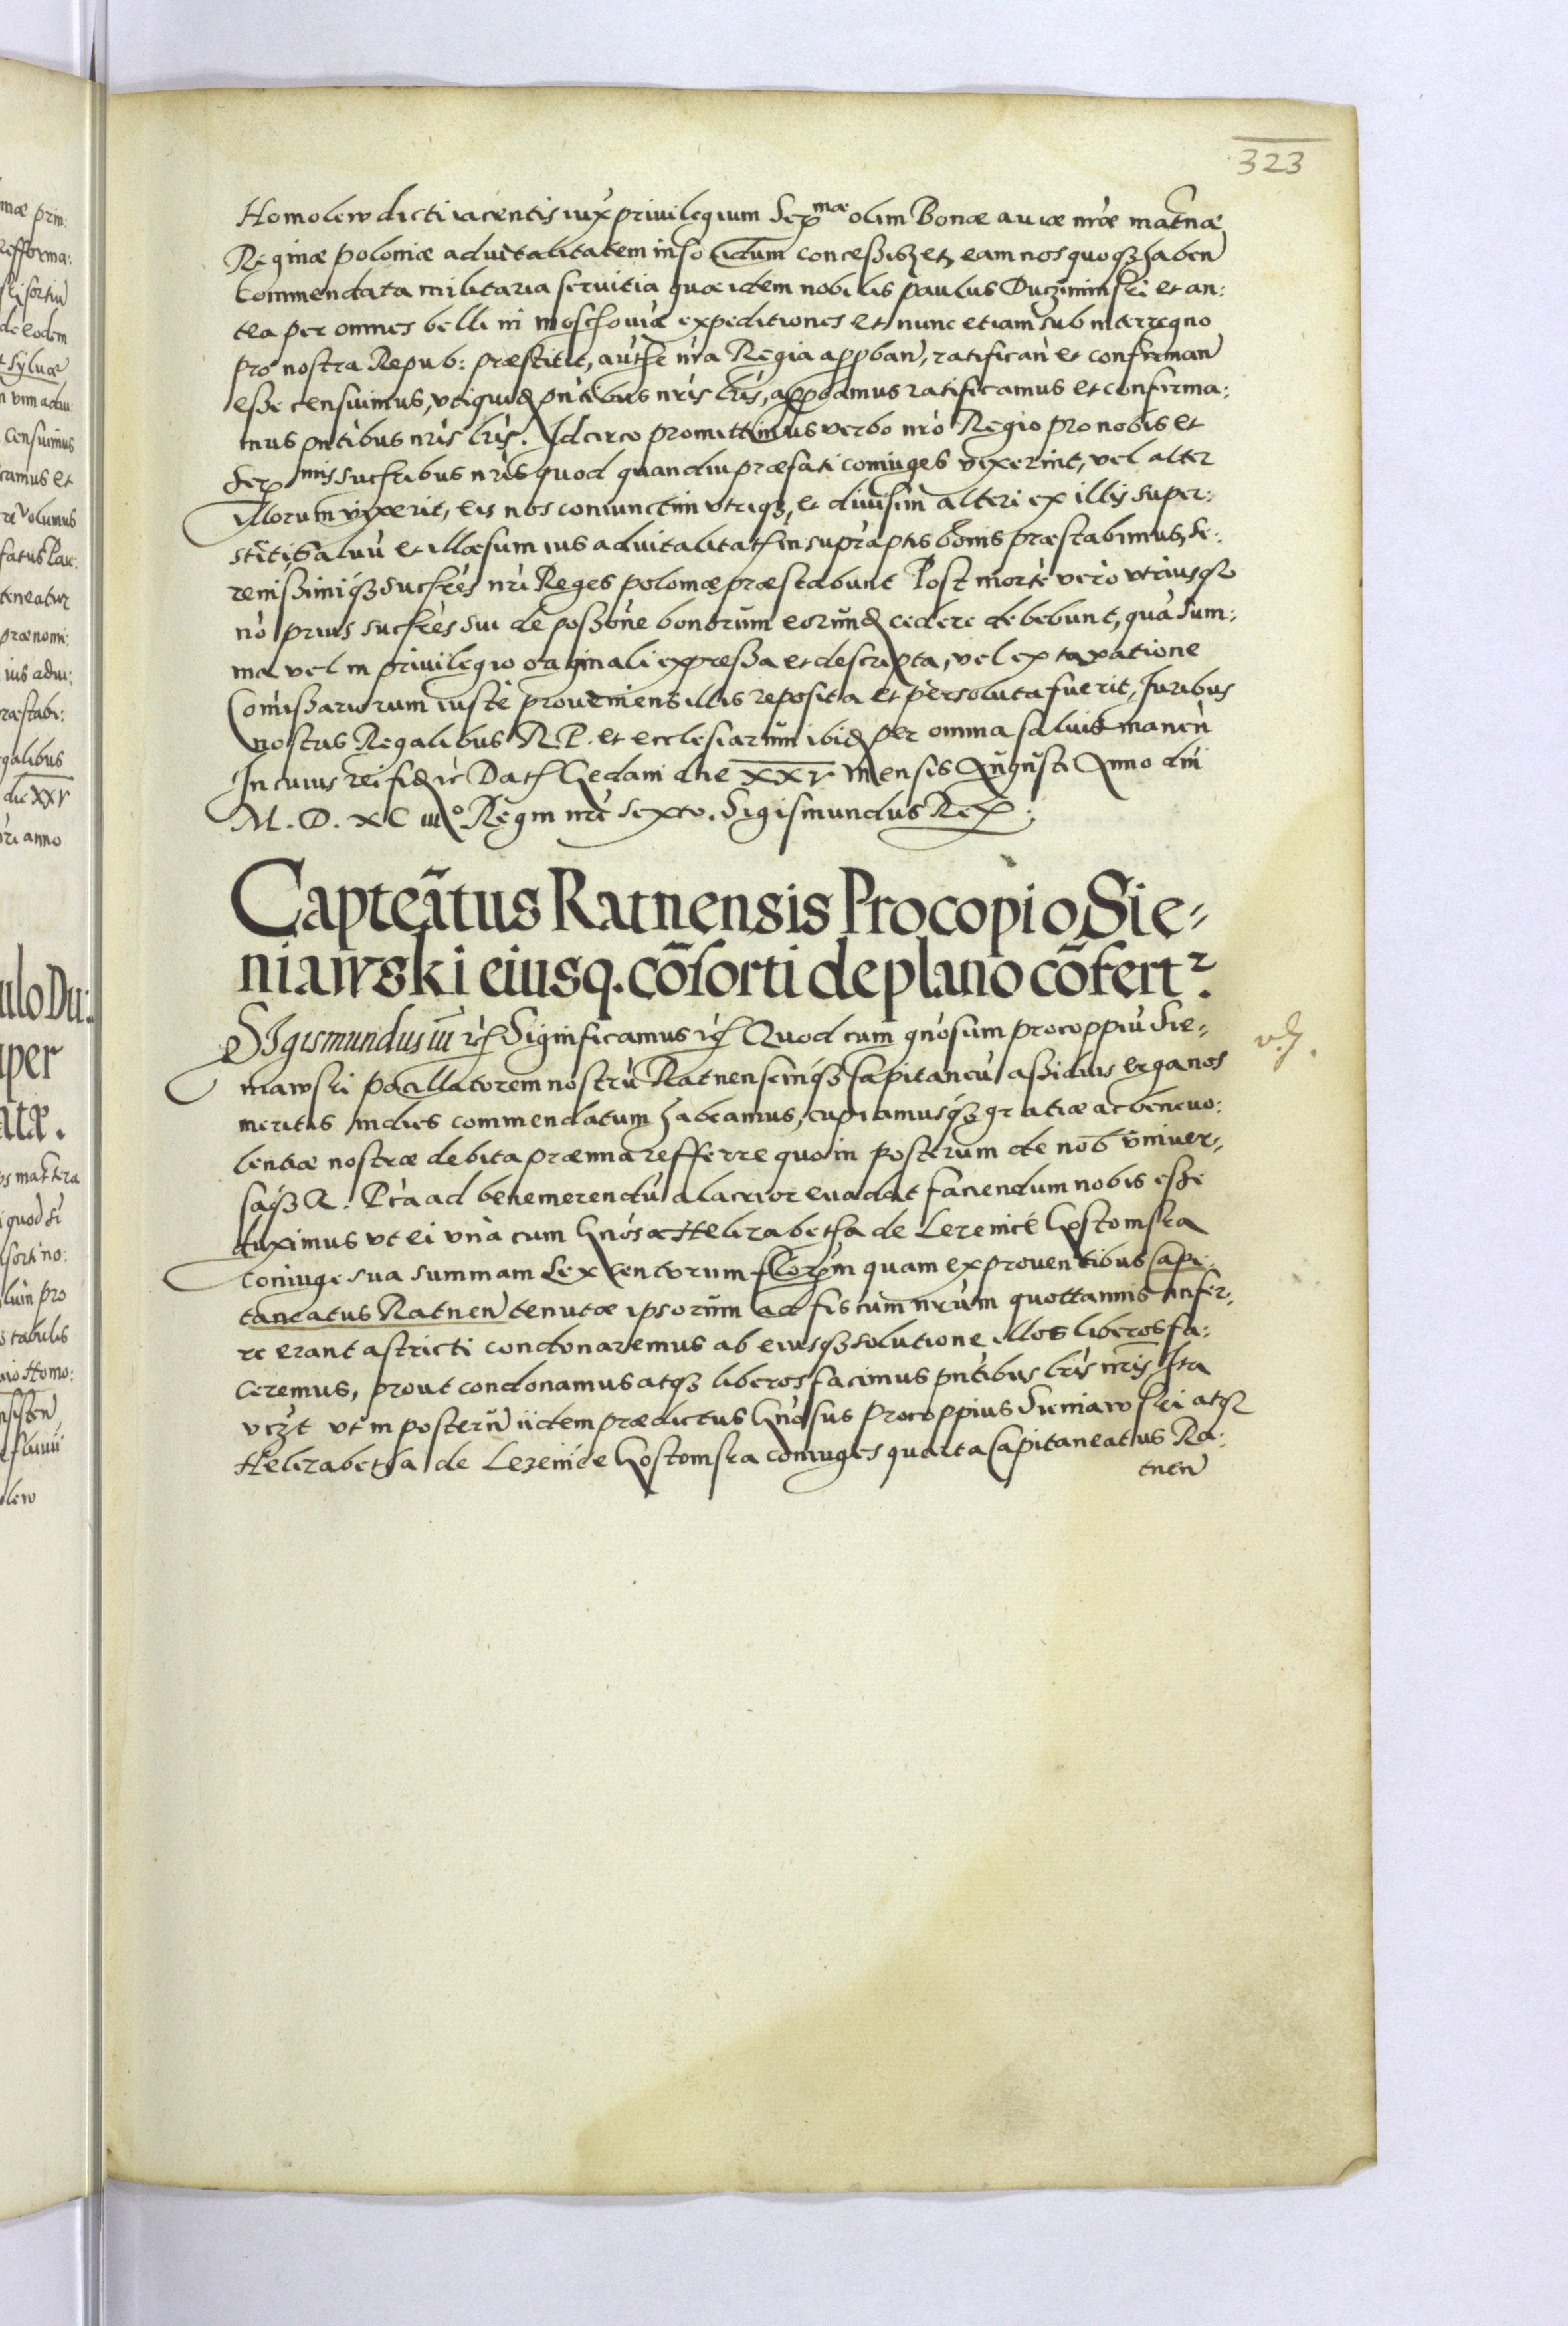 323
Homolew dicti iacentis iux privilegium Serͣᵐᵃᵉ olim Bonæ auiæ nr̃æ mat̃næ
Reginæ poloniæ aduitalitatem in solidum concessisʒ etʒ eam nos quoqʒ haben̄
Commendata militaria servitia quæ idem nobilis paulus Duczÿminski et an:
tea per omnes belli in moschouiæ expeditiones et nunc etiam sub interregno
pro nostra Repub: præstitit, auth̃e nr̃a Regia approban̄, ratifican̄ et confirman̄
esse censuimus, vtiquidē pn̄tibus nr̃is lr̃is, approbamus ratificamus et confirma:
mus pn̄tibus nr̃is lr̃is. Idcirco promittimus verbo nr̃o Regio pro nobis et
Serᵐⁱˢ succribus nr̃is quod quandiu præfati coniuges vixerint, vel alter
illorum vixerit, eis nos coniunctim vtriqʒ, et diuisim alteri ex illis super:
stiti, saluū et illæsum ius aduitalitat̃ in supraptis bonis præstabimus, Se:
renissimiqʒ succres nr̃i Reges poloniæ præstabunt Post mortē vero vtriusqʒ
nō prius succres sui de possone bonorum eorundē cedere debebunt, quā sum:
ma vel in privilegio originali expressa et descripta, vel ex taxatione
Comissariorum iuste proveniens illis reposita et persoluta fuerit, Iuribus
nostris Regalibus R.P. et ecclesiarum ibidē per omnia saluis manen̄
In cuius rei fidē rc̄ Dat̃ Gedani die XXV mensis Augusti Anno dn̄i
M.D.XC iii°. Regni nr̃i sexto. Sigismundus Rex:
Capteãtus Ratnensis Procopio Sie⸗
niawski eiusq. cõsorti de plano cõfertᵣ.
SIgismundus iii rc̄ Significamus rc̄ Quod cum gn̄osum procoppiū Sie⸗
niawski pocillatorem nostrū Ratnensemqʒ Capitaneū assiduis erga nos
meritis indies commendatum habeamus, cupiamusqʒ gratiæ ac benevo:
lentiæ nostræ debita præmia refferre quo in posterum de nob̄ vniver⸗
saqʒ R. Pca ad benemerendū alacrior euadat faciendum nobis esse
duximus vt ei vnà cum Gn̄osa Helizabetha de Lezenice Gostomska
coniuge sua summam sexcentorum florem quam ex proventibus Capi⸗
taneatus Ratnen̄ tenutæ ipsorum ad fiscum nr̃um quottannis infer⸗
re erant astricti condonaremus ab eiusqʒ solutione illos liberos fa:
ceremus, prout condonamus atqʒ liberos facimus pn̄tibus lr̃is nr̃is Ita
vīzt vt in posterū iidem prædictus Gn̄osus Procoppius Sieniawski atqʒ
Helizabetha de Lezenice Gostomska coniuges quarta Capitaneatus Ra:
tnen̄